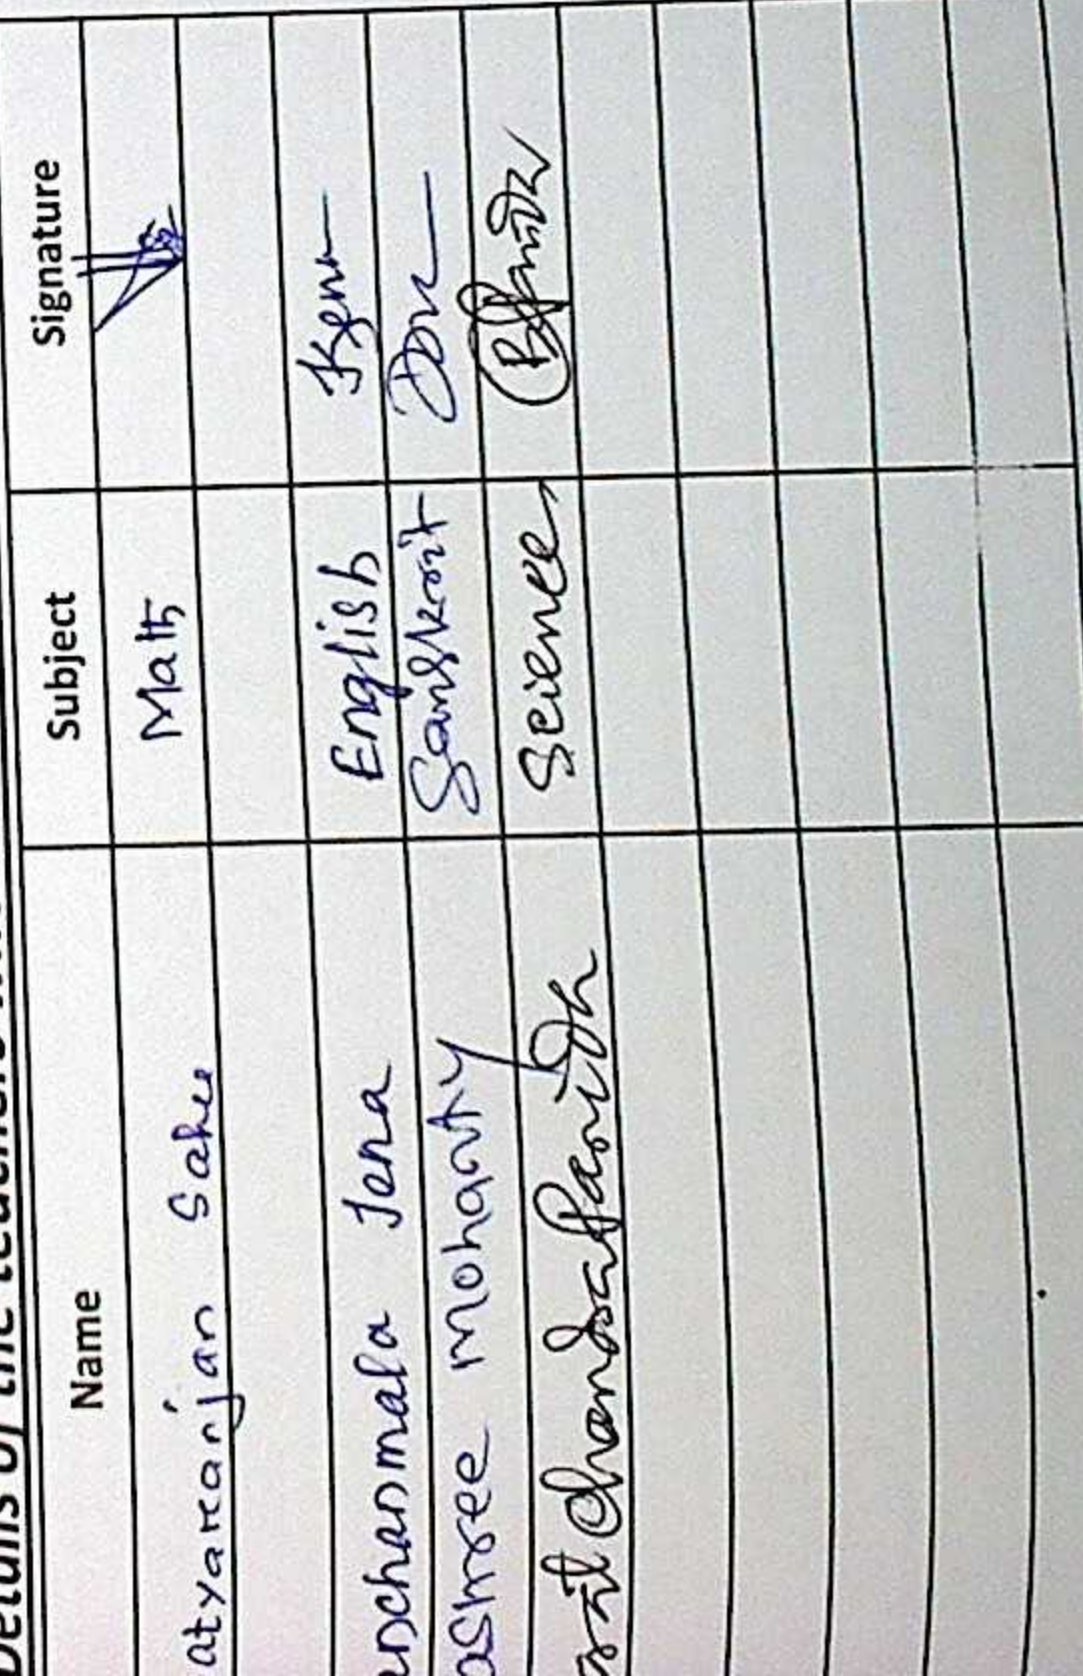 Details of the teachers
Name Subject Signature
atyaranjan Sahu Math
anchanmala Jena English
ashree Mohanty Sanskrit
Chandra Parida Science